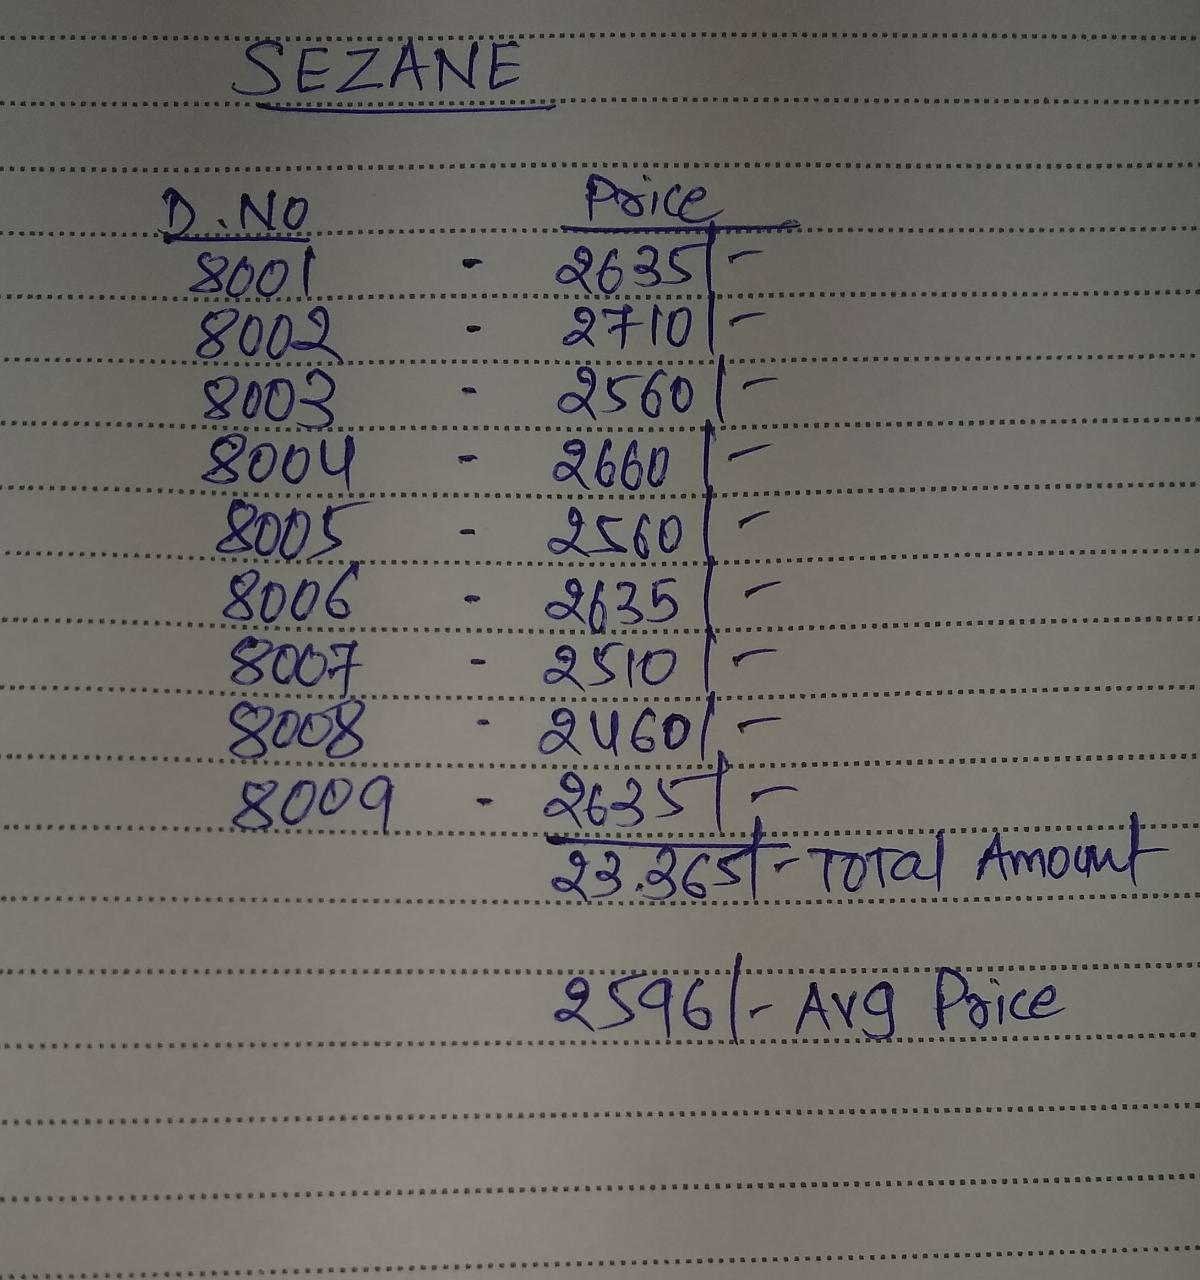 SEZANE
D.NO Price
8001 - 2635/-
8002 - 2710/-
8003 - 2560/-
8004 - 2660/-
8005 - 2560/-
8006 - 2635/-
8007 - 2510/-
8008 - 2460/-
8009 - 2635/-
23.365/- Total Amount
2596/- Avg Price